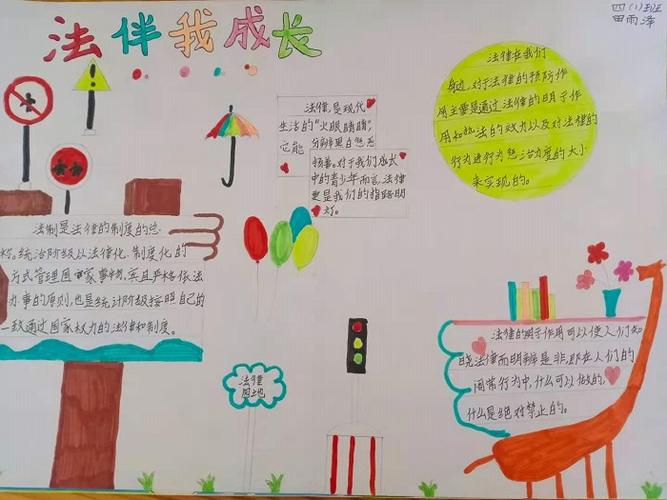 法伴我成长
四(1)班
田雨泽
法律,是现代
生活的“火眼睛睛”,
它能 分辨黑白惩恶
扬善。对于我们成长
中的青少年而言,法律
更是我们的指路明
灯。
法律在我们
身边,对于法律的预防作
用主要是通过法律的明示作
用和执法的效力以及对法律的
行为进行为惩治力度的大小
来实现的。
法制是法律的制度的总
称。统治阶级以法律化、制度化的
方式管理国家事务,实且严格依法
办事的原则,也是统计阶级按照自己的
一致通过国家权力的法律和制度。
法律
园地
法律的明示作用可以使人们知
晓法律而明辨是非,即在人们的
闲常行为中,什么可以做的,
什么是绝对禁止的。